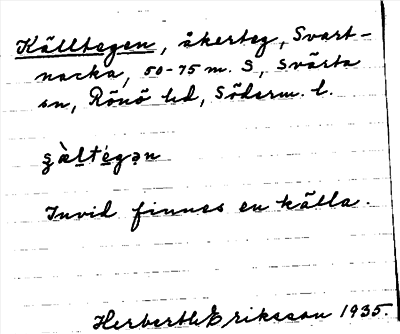 Källtegen, åkerteg, Svart-
nacka, 50-75 m. S, Svärta
sn, Rönö hd, Söderm. l.
Invid finnes en källa.
Eriksson 1935.